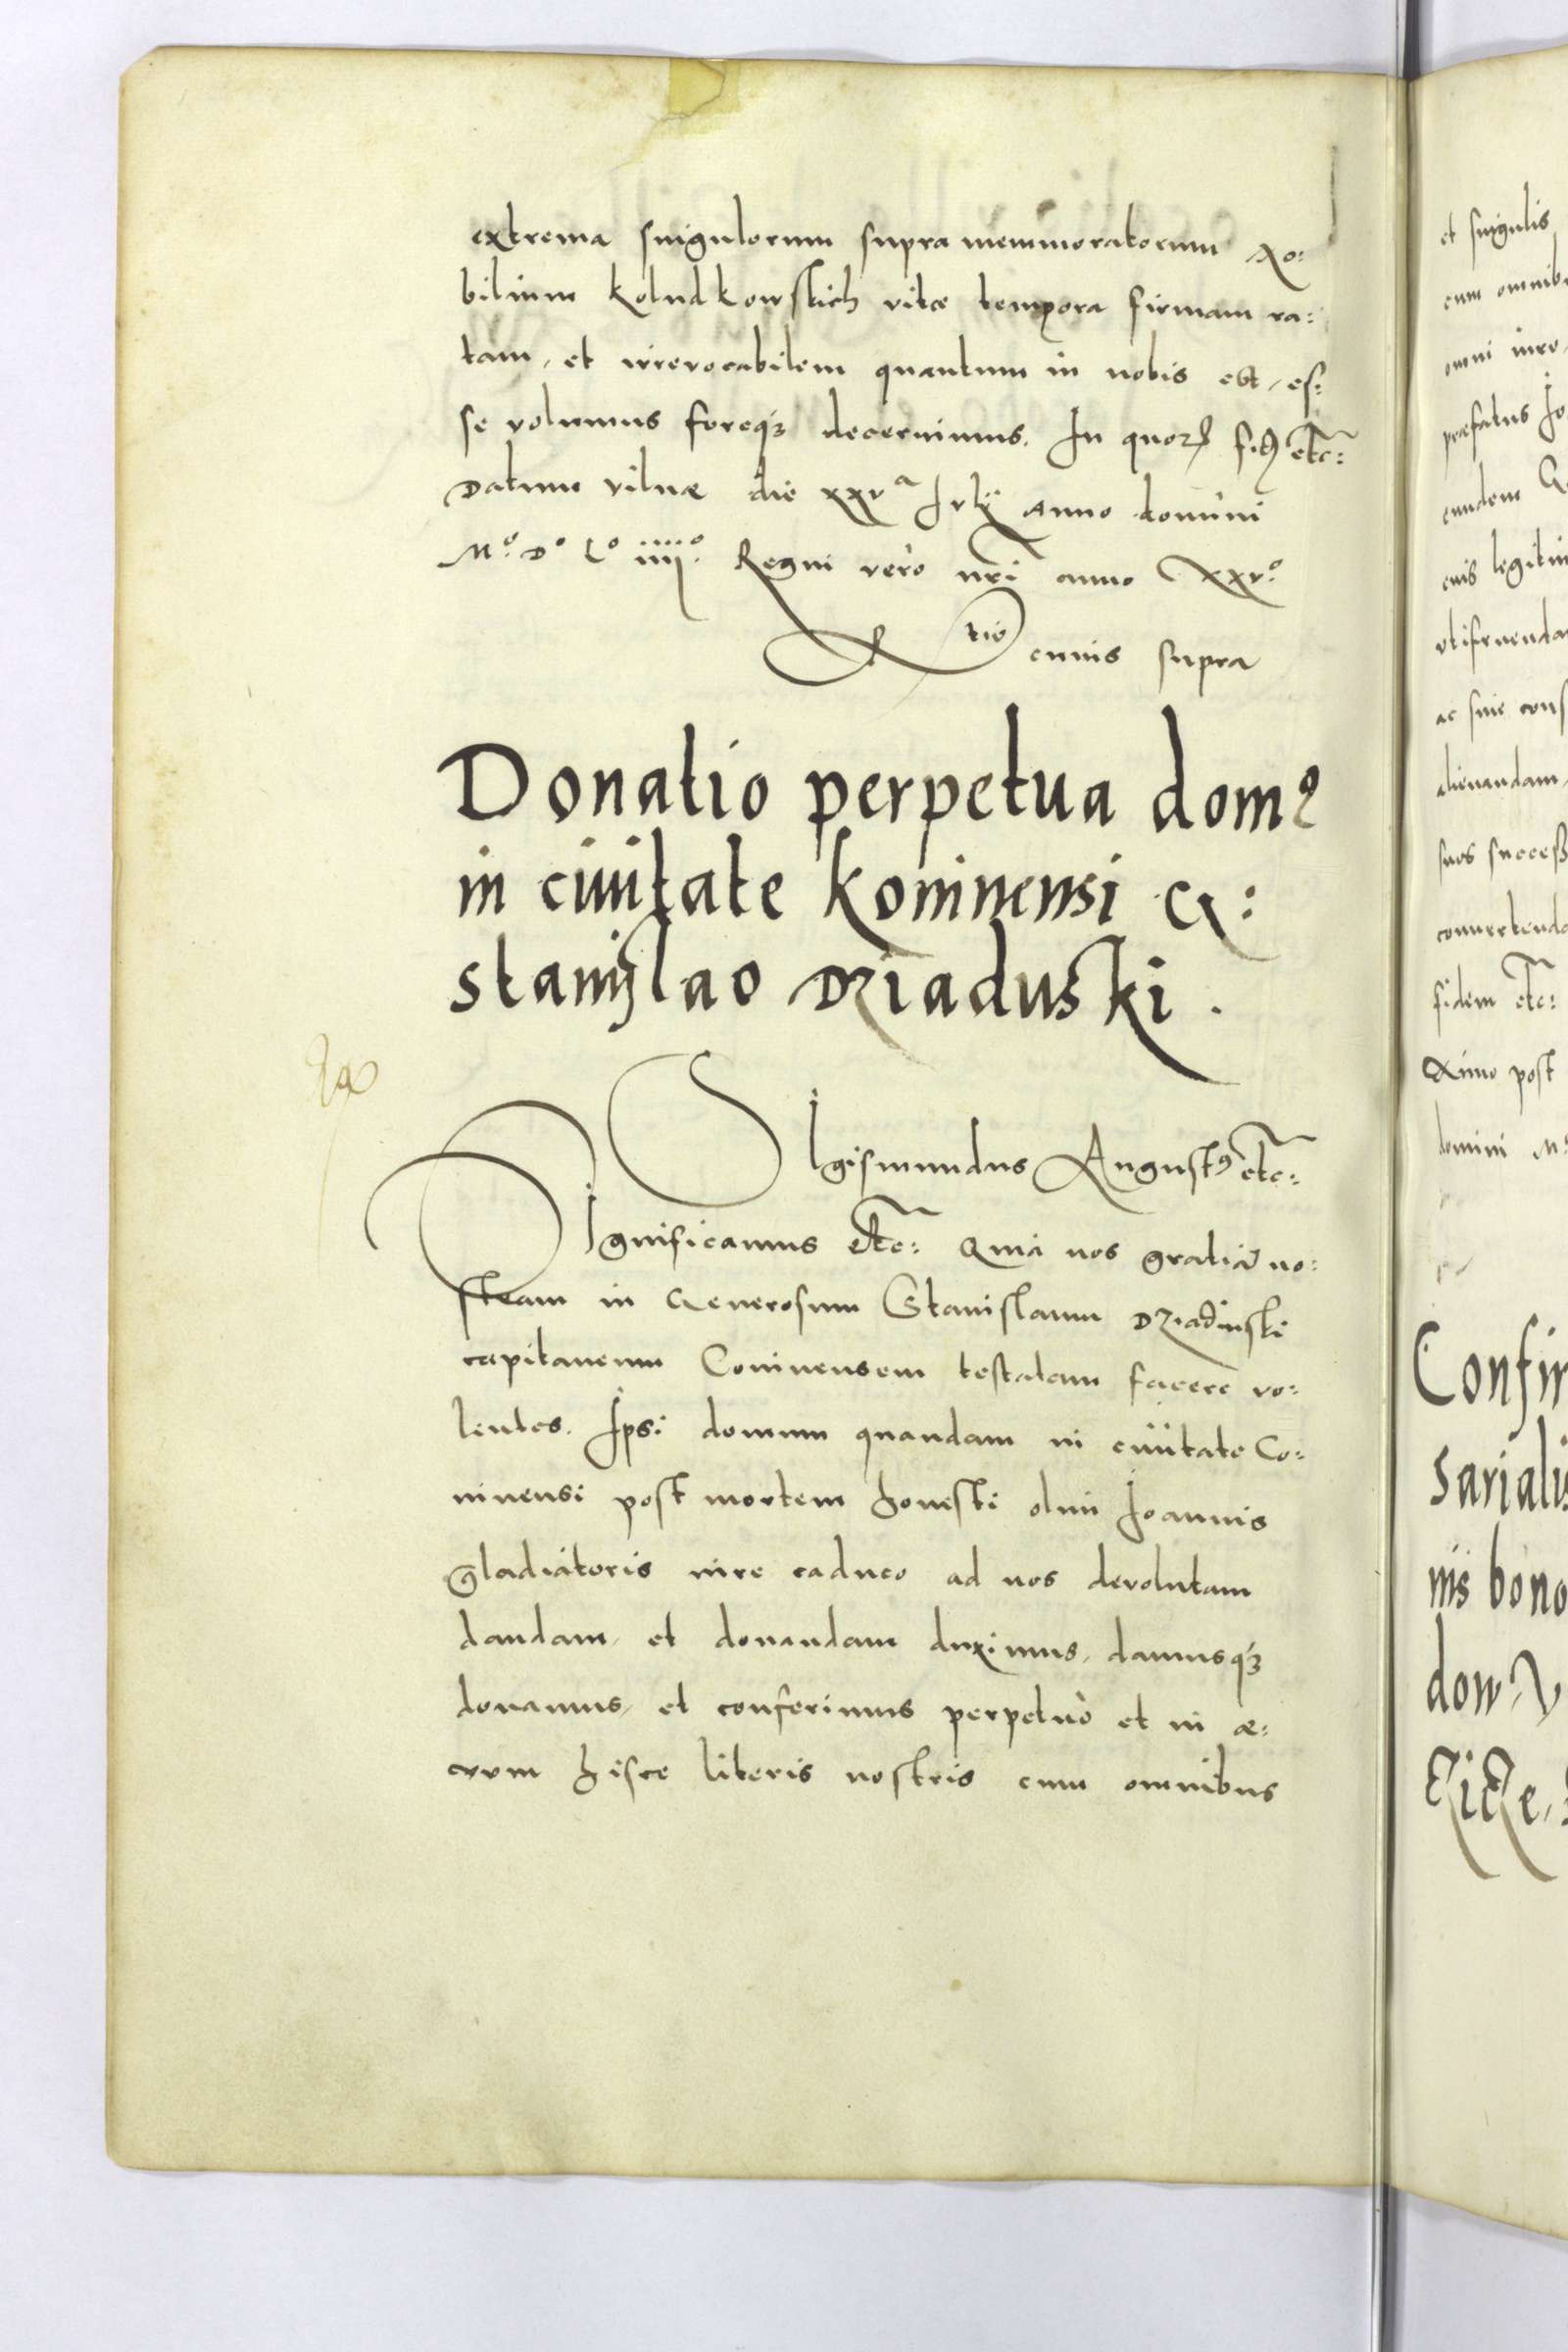 extrema singulorum supra memmoratorum No:
bilium Koludkowskich vitæ tempora firmam ra:
tam, et irrevocabilem quantum in nobis est, es:
se volumus foreqꝫ decernimus. In quorꝝ fidẽ etc:
Datum Vilnæ die xxvᵃ Julÿ anno domini
Mº. Dº Lº iiijº. Regni verò nr̃i anno XXVº.
Rtio cuius supra
Donatio perpetua domꝰ
in ciuitate Koninensi G:
Stanislao Dziaduski.
SIgismundus Augustꝰ etc:
SIgnificamus etc: Quia nos gratiã no:
stram in Generosum Stanislaum Dziaduski
capitaneum Coninensem testatam facere vo:
lentes. Ipsi domum quandam in ciuitate Co:
ninensi post mortem honesti olim Joannis
gladiatoris iure caduco ad nos devolutam
dandam, et donandam duximus, damusqꝫ
donamus, et conferimus perpetuò et in æ:
vvm hisce literis nostris cum omnibus
et singulis
cum omnib
omni iure
præfatus Jo
eundem G
eius legitim
vtifruenda
ac sine cons
alienandam
suos success
conuertenda
fidem etc:
Ximo post
domini Mº
Confir
sarialis
nis bono
dow V